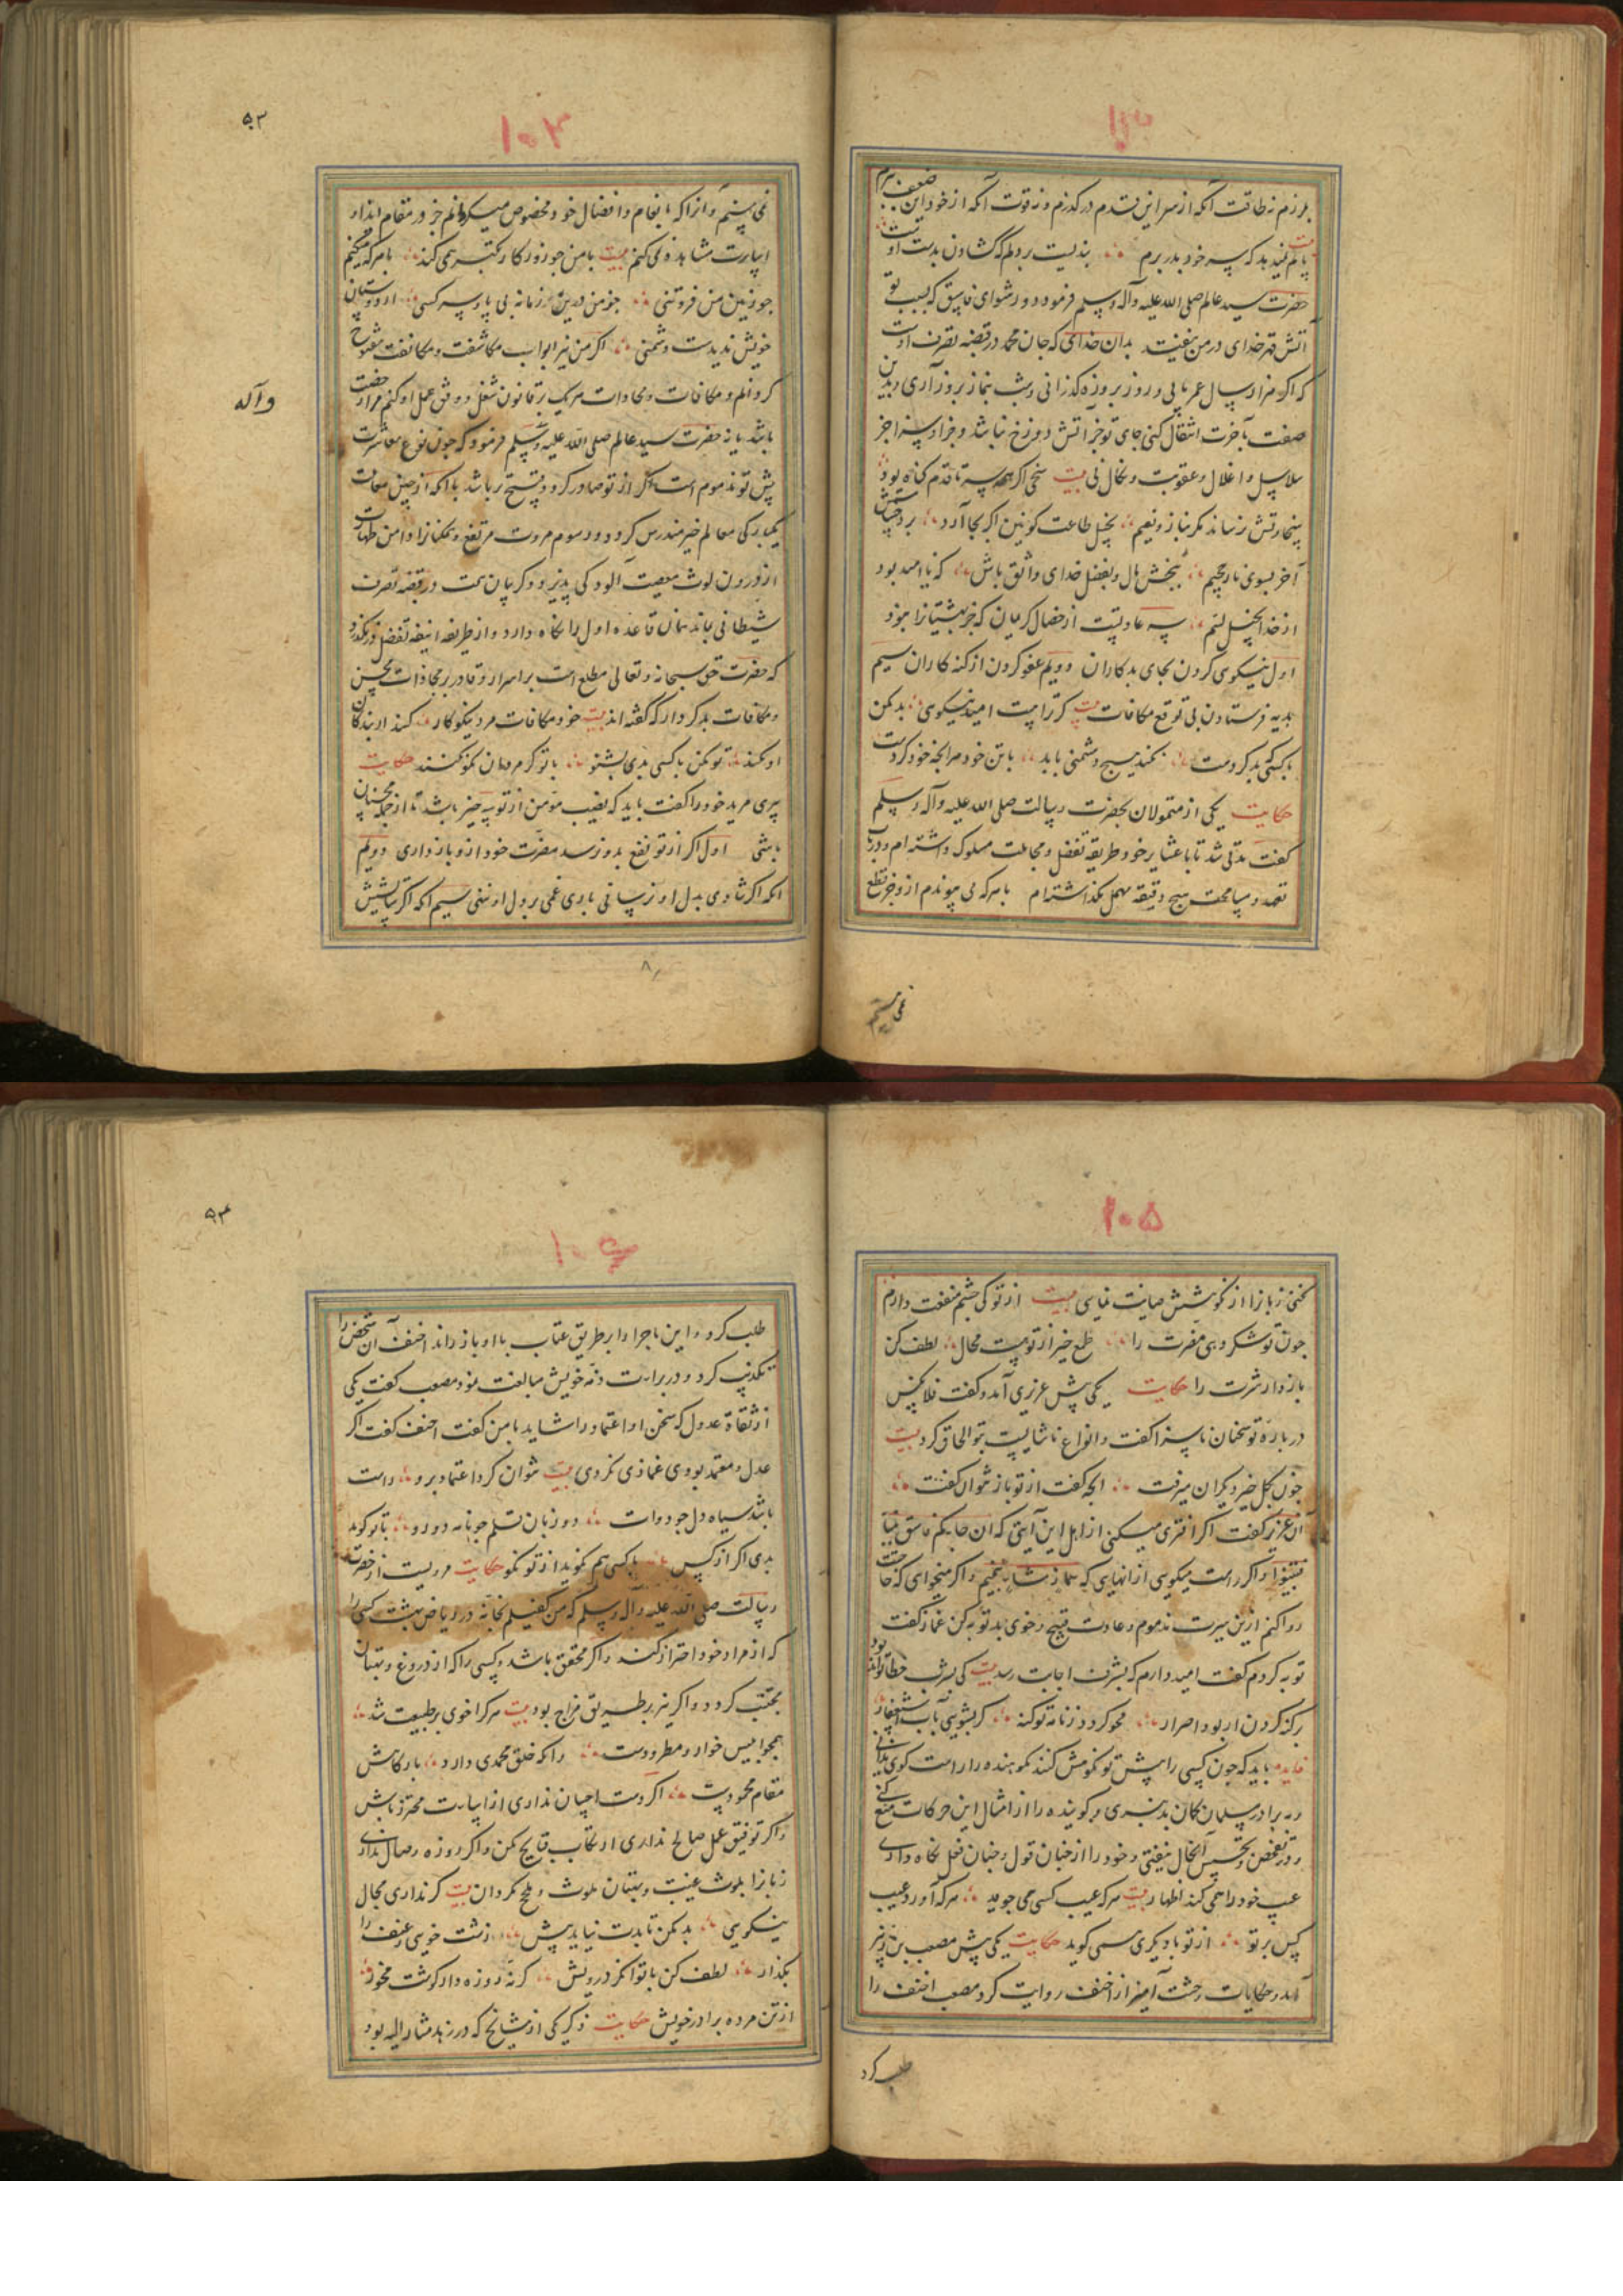 ۱۰۳
برزم نه طاقت آنکه از سر این قدم درگذرم و نه قوت آنکه از خود این ضعف ببرم
پایم نمیدهد که پی خود بدر برم ؞ بندیست بر دلم که گشادن بدست اوست
حضرت سید عالم صلی الله علیه وآله وسلم فرمود دور شو ای فاسق که بسبب تو
آتش قهر خدای در من نیفتد بدان خدائی که جان محمد در قبضه تصرف اوست
که اگر هزار سال عمر یابی و روز بروزه گذرانی و شب بنماز بروز آری و بدین
صفت بآخرت انتقال کنی جای تو جز آتش دوزخ نباشد و جزا و سزا جز
سلاسل و اغلال و عقوبت و نکال نی بیت سخی اگر همه سر تا قدم گناه بود
سخاوتش نرساند مگر بناز و نعیم ؞ بخیل طاعت کونین اگر بجا آرد ؞
آخر بسوی نار جحیم ؞ ببخش مال و بفضل خدای واثق باش ؞ که ناامید بود
از خدا بخیل لئیم ؞ سه عادتست از خصال کریمان که جز بهشتیانرا نبود
اول نیکوی کردن بجای بدکاران دویم عفو کردن از گنه کاران سیم
هدیه فرستادن بی توقع مکافات بیت گر تراست امید نیکوی ؞ بد مکن
با کسی که بد کردست ؞ نکند هیچ دشمنی باید ؞ با تن خود هر آنچه خود کردست
حکایت یکی از متمولان بحضرت رسالت صلی الله علیه وآله وسلم
گفت مدتی شد تا با عشایر خود طریقه تفضل و مجاملت مسلوک داشته ام و در باب
تعهد و مسامحت هیچ دقیقه مهمل نگذاشته ام با هر که می پیوندم از و جز قطع
نمی بینم
۱۰۴
۵۳
نمی بینم و آنرا که بانعام و افضال خود مخصوص میگردانم جز در مقام ایذا و
اساءت مشاهده نمی کنم بیت با من جو زور کار تکبر همی کند ؞ با هر که میکنم
جو زمین من فروتنی ؞ جز من درین زمانه بی پا و سر کسی ؞ از دوستان
خویش ندیدست دشمنی ؞ اگر من نیز ابواب مکاشفت و مکافت مفتوح
گردانم و مکافات و مجازات هر یک بر قانون شغل و وفق عمل او کنم مرا رخصت
باشد یا نه حضرت سید عالم صلی الله علیه وسلم فرمود که جون نوع معاشرت
وآله
پیش تو مذموم است اگر از تو صادر گردد قبیح تر باشد با آنکه از چنین معاملت
یکبارگی معالم خیر مندرس گردد و رسوم مروت مرتفع و همگنانرا دامن طهارت
از درون لوث معصیت آلودگی پذیرد و گریبان همت در قبضه تصرف
شیطانی بماند همان قاعده اول را نگاه دارد و از طریقه انیقه تفضل در نگذر
که حضرت حق سبحانه وتعالی مطلع است بر اسرار و قادر بر مجازات محسن
و مکافات بدکردار که گفته اند بیت خود مکافات مرد نیکوکار ؞ کند از بندگان
او نکند ؞ تو مکن با کسی بدی بشنو ؞ با تو گر مردمان نکو نکنند حکایت
پیری مرید خود را گفت باید که نصیب مؤمن از تو سه چیز باشد تا از جمله محسنان
باشی اول اگر از تو نفع بدو نرسد مضرت خود از و باز داری دویم
آنکه اگر شادی بدل او نرسانی باری غمی بر دل او ننهی سیم آنکه اگر ستایش
۱۰۵
نکنی زبانرا از نکوهش صیانت نمایی بیت از تو کی جشم منفعت دارم
جون تو شکر دهی مضرت را ؞ طمع خیر از تو هست محال ؞ لطف کن
باز دار شرت را حکایت یکی پیش عزیزی آمد و گفت فلان کس
در باره تو سخنان ناسزا گفت و انواع ناشایست بتو الحاق کرد بیت
جون بکل خیر دیگران میرفت ؞ آنچه گفت از تو باز نتوان گفت ؞
آن عزیز گفت اگر افتری میکنی از اهل این آیتی که ان جاءکم فاسق بنبأ
فتبینوا و اگر راست میگویی از آنهایی که هماز مشاء بنمیم و اگر میخواهی که حاجتت
روا کنم ازین سیرت مذموم و عادت قبیح و خوی بد توبه کن غماز گفت
توبه کردم گفت امیدوارم که بشرف اجابت رسد بیت
بر گنه کردن ار بود اصرار ؞ محو گردد ز نامه تو گنه ؞ گر بشویی بآب استغفار ؞
فایده باید که جون کسی را پیش تو نکوهش کنند نکوهنده را راست گوی ندانی
و به برادر مسلمان گمان بد نبری و گوینده را از امثال این حرکات منع کنی
و در تفحص و تجسس آنحال نیفتی و خود را از خبان قول و خبان فعل نگاه داری
عیب خود را همی کند اظهار بیت هر که عیب کسی همی جوید ؞ هر که آورد عیب
کس بر تو ؞ از تو با دیگری همی گوید حکایت یکی پیش مصعب بن زبیر
آمد و حکایات وحشت آمیز از احنف روایت کرد مصعب احنف را
طلب کرد
۱۰۶
۵۴
طلب کرد و این ماجرا را بر طریق عتاب با او باز راند احنف آن شخص را
تکذیب کرد و در براءت ذمه خویش مبالغت نمود مصعب گفت یکی
از ثقاة عدول که سخن او اعتماد را شاید با من گفت احنف گفت اگر
عدل و معتمد بودی غمازی نکردی بیت نتوان کرد اعتماد برو ؞ راست
باشد سیاه دل جو دوات ؞ دو زبان قلم جو نامه دو رو ؞ با تو گوید
بدی اگر از کس ؞ با کسی هم نگوید از تو نکو حکایت مرویست از حضرت
رسالت صلی الله علیه وآله وسلم که من کفیلم بخانه در ریاض بهشت کسی را
که از مراد خود احتراز کند و اگر محقق باشد و کسی را که از دروغ و بهتان
مجتنب گردد و اگر نیز بر طریق مزاج بود بیت هر کرا خوی بر طبیعت شد ؞
همجو ابلیس خوار و مطرودست ؞ وانکه خلق محمدی دارد ؞ بارگاهش
مقام محمودست ؞ اگر دست احسان نداری از اساءت محترز باش
و اگر توفیق عمل صالح نداری ارتکاب قبایح مکن و اگر روزه وصال نداری
زبانرا بلوث غیبت و بهتان ملوث و ملح مگردان بیت گر نداری مجال
نیکویی ؞ بد مکن تا بدت نیاید پیش ؞ زشت خویی و عنف را
بگذار ؞ لطف کن با توانگر و درویش ؞ گر نه روزه دار گوشت مخور ؞
از تن مرده برادر خویش حکایت ذکر یکی از مشایخ که در زهد مشار الیه بود